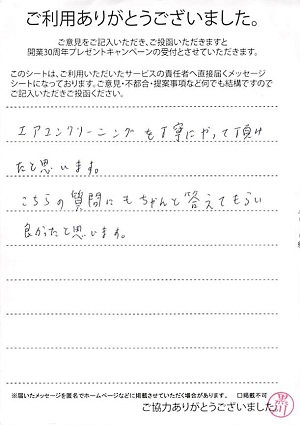 ご利用ありがとうございました。
ご意見をご記入いただき、ご投函いただきますと
開業30周年プレゼントキャンペーンの受付とさせていただきます。
このシートは、ご利用いただいたサービスの責任者へ直接届くメッセージ
シートになっております。ご意見・不都合・提案事項など何でも結構ですので
ご記入いただきご投函ください。
エアコンクリーニングを丁寧にやって頂け
たと思います。
こちらの質問にもちゃんと答えてもらい
良かったと思います。
※届いたメッセージを匿名でホームページなどに掲載させていただく場合があります。 口掲載不可
ご協力ありがとうございました。
黒川